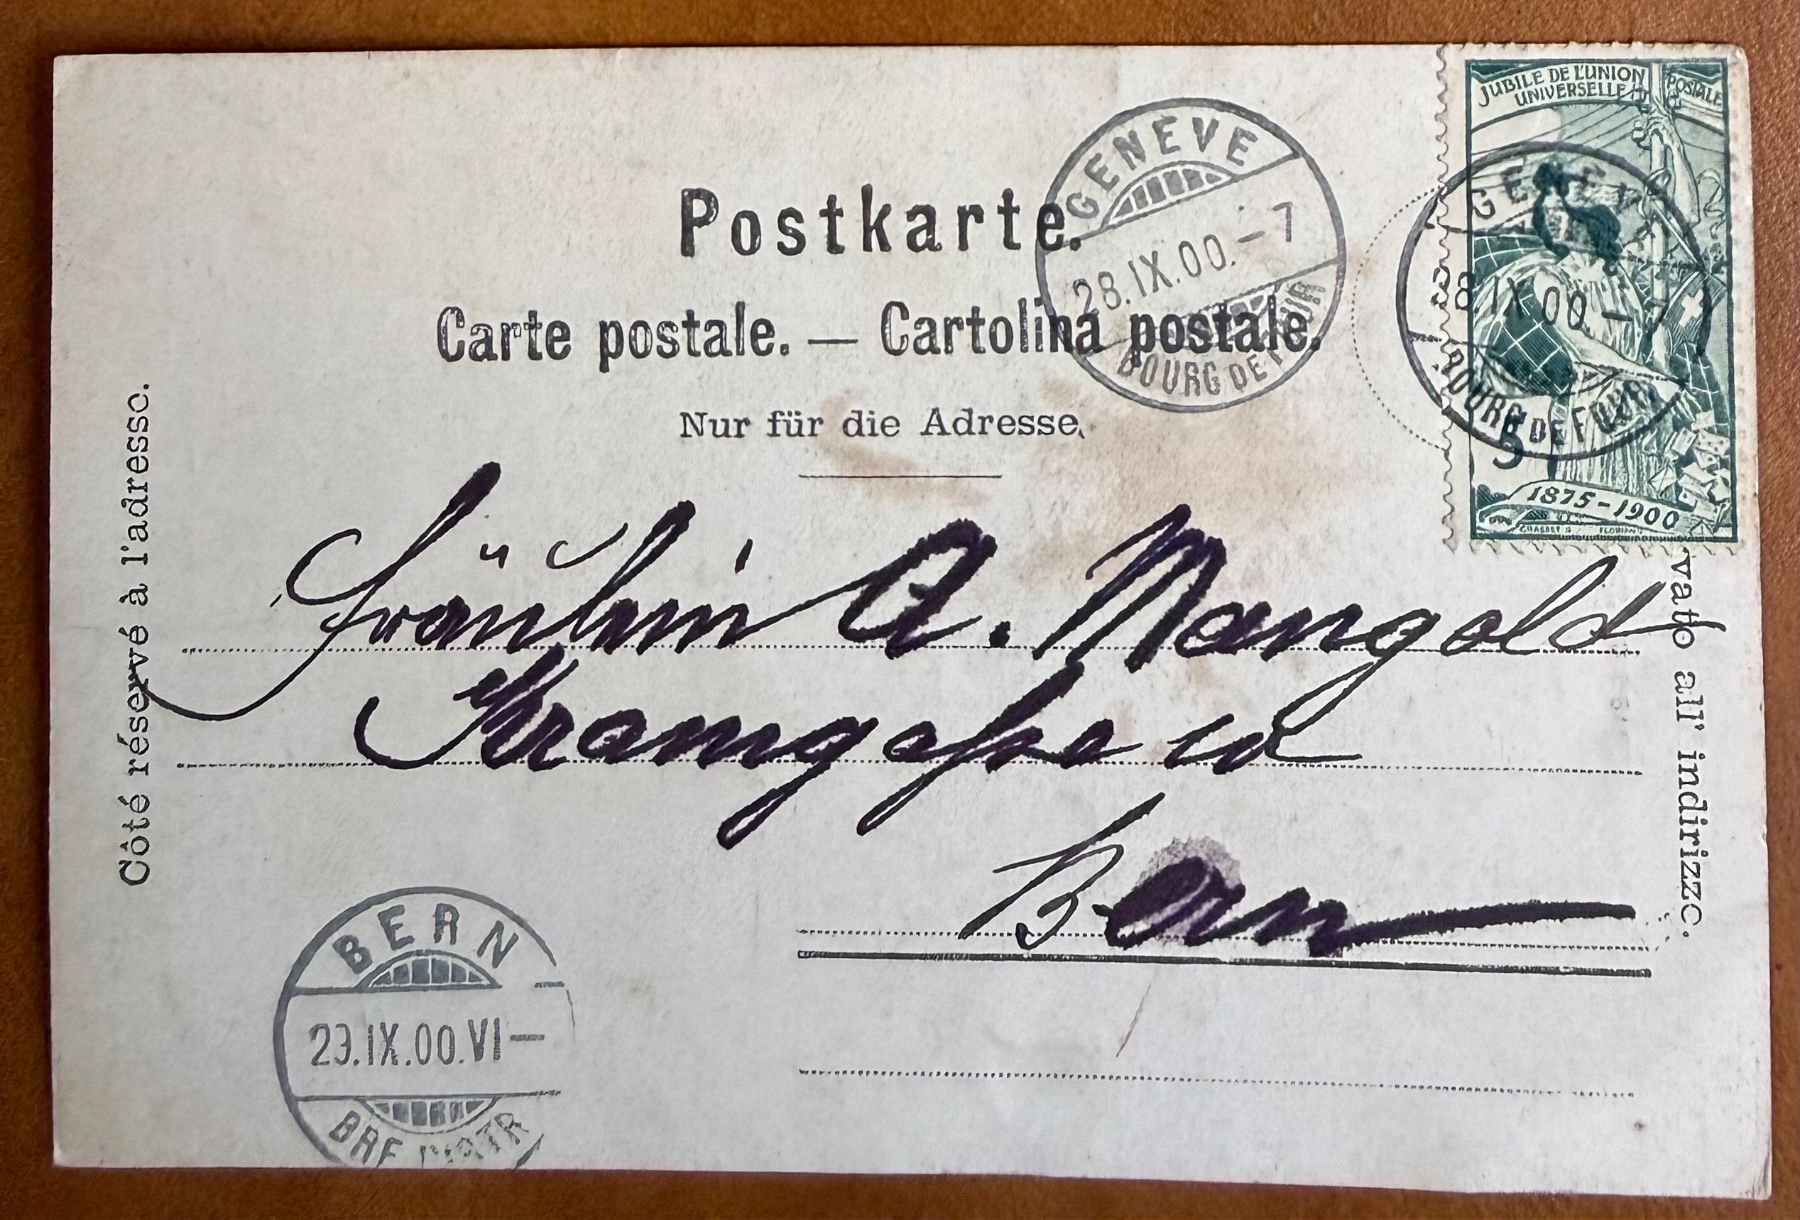 JUBILE DE L'UNION POSTALE
UNIVERSELLE
GENEVE
28.IX.00.-7
BOURG DE FOUR
GENEVE
8.IX.00.-7
BOURG DE FOUR
5
1875-1900
GRASSET
FLORIAN
Postkarte.
Carte postale. — Cartolina postale.
Nur für die Adresse.
Côté réservé à l'adresse.
vato all' indirizzo.
Fräulein A. Mangold
Kramgasse
Bern
BERN
29.IX.00.VI-
BRF